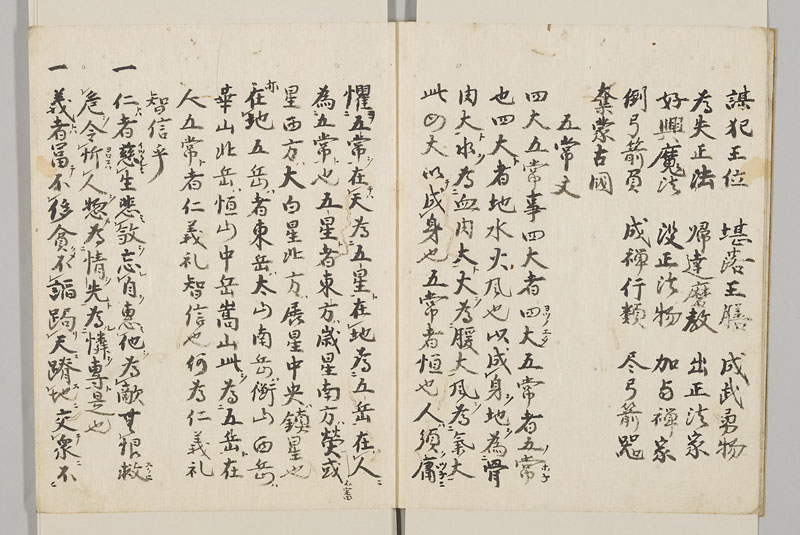 謀犯王位　堪落王膳　成武勇物
為失正法　帰達磨教　出正法家
好興魔法　没正法物　加旨禅家
倒弓箭負　成禅行類　尽弓箭冤
奪蒙古国
五常文
四大五常事四大者四大五常者五常
也四大者地水火風也以成身地為骨
肉大水為血肉大火為膸大風為氣大
此四大以成身也五常者恒也人須庸
懼五常在天為五星在地為五岳在人
為五常也五星者東方歳星南方熒或
星西方大白星北方辰星中央鎮星也
在地五岳者東岳太山南岳衡山西岳
華山北岳恒山中岳嵩山此為五岳在
人五常者仁義礼智信也何為仁義礼
智信乎
一 仁者慈生悲敬忘自惠他為敵無恨救
危令所人愍為情先為憐専是也
一 義者冨不移貪不謟跼天蹐地交衆不